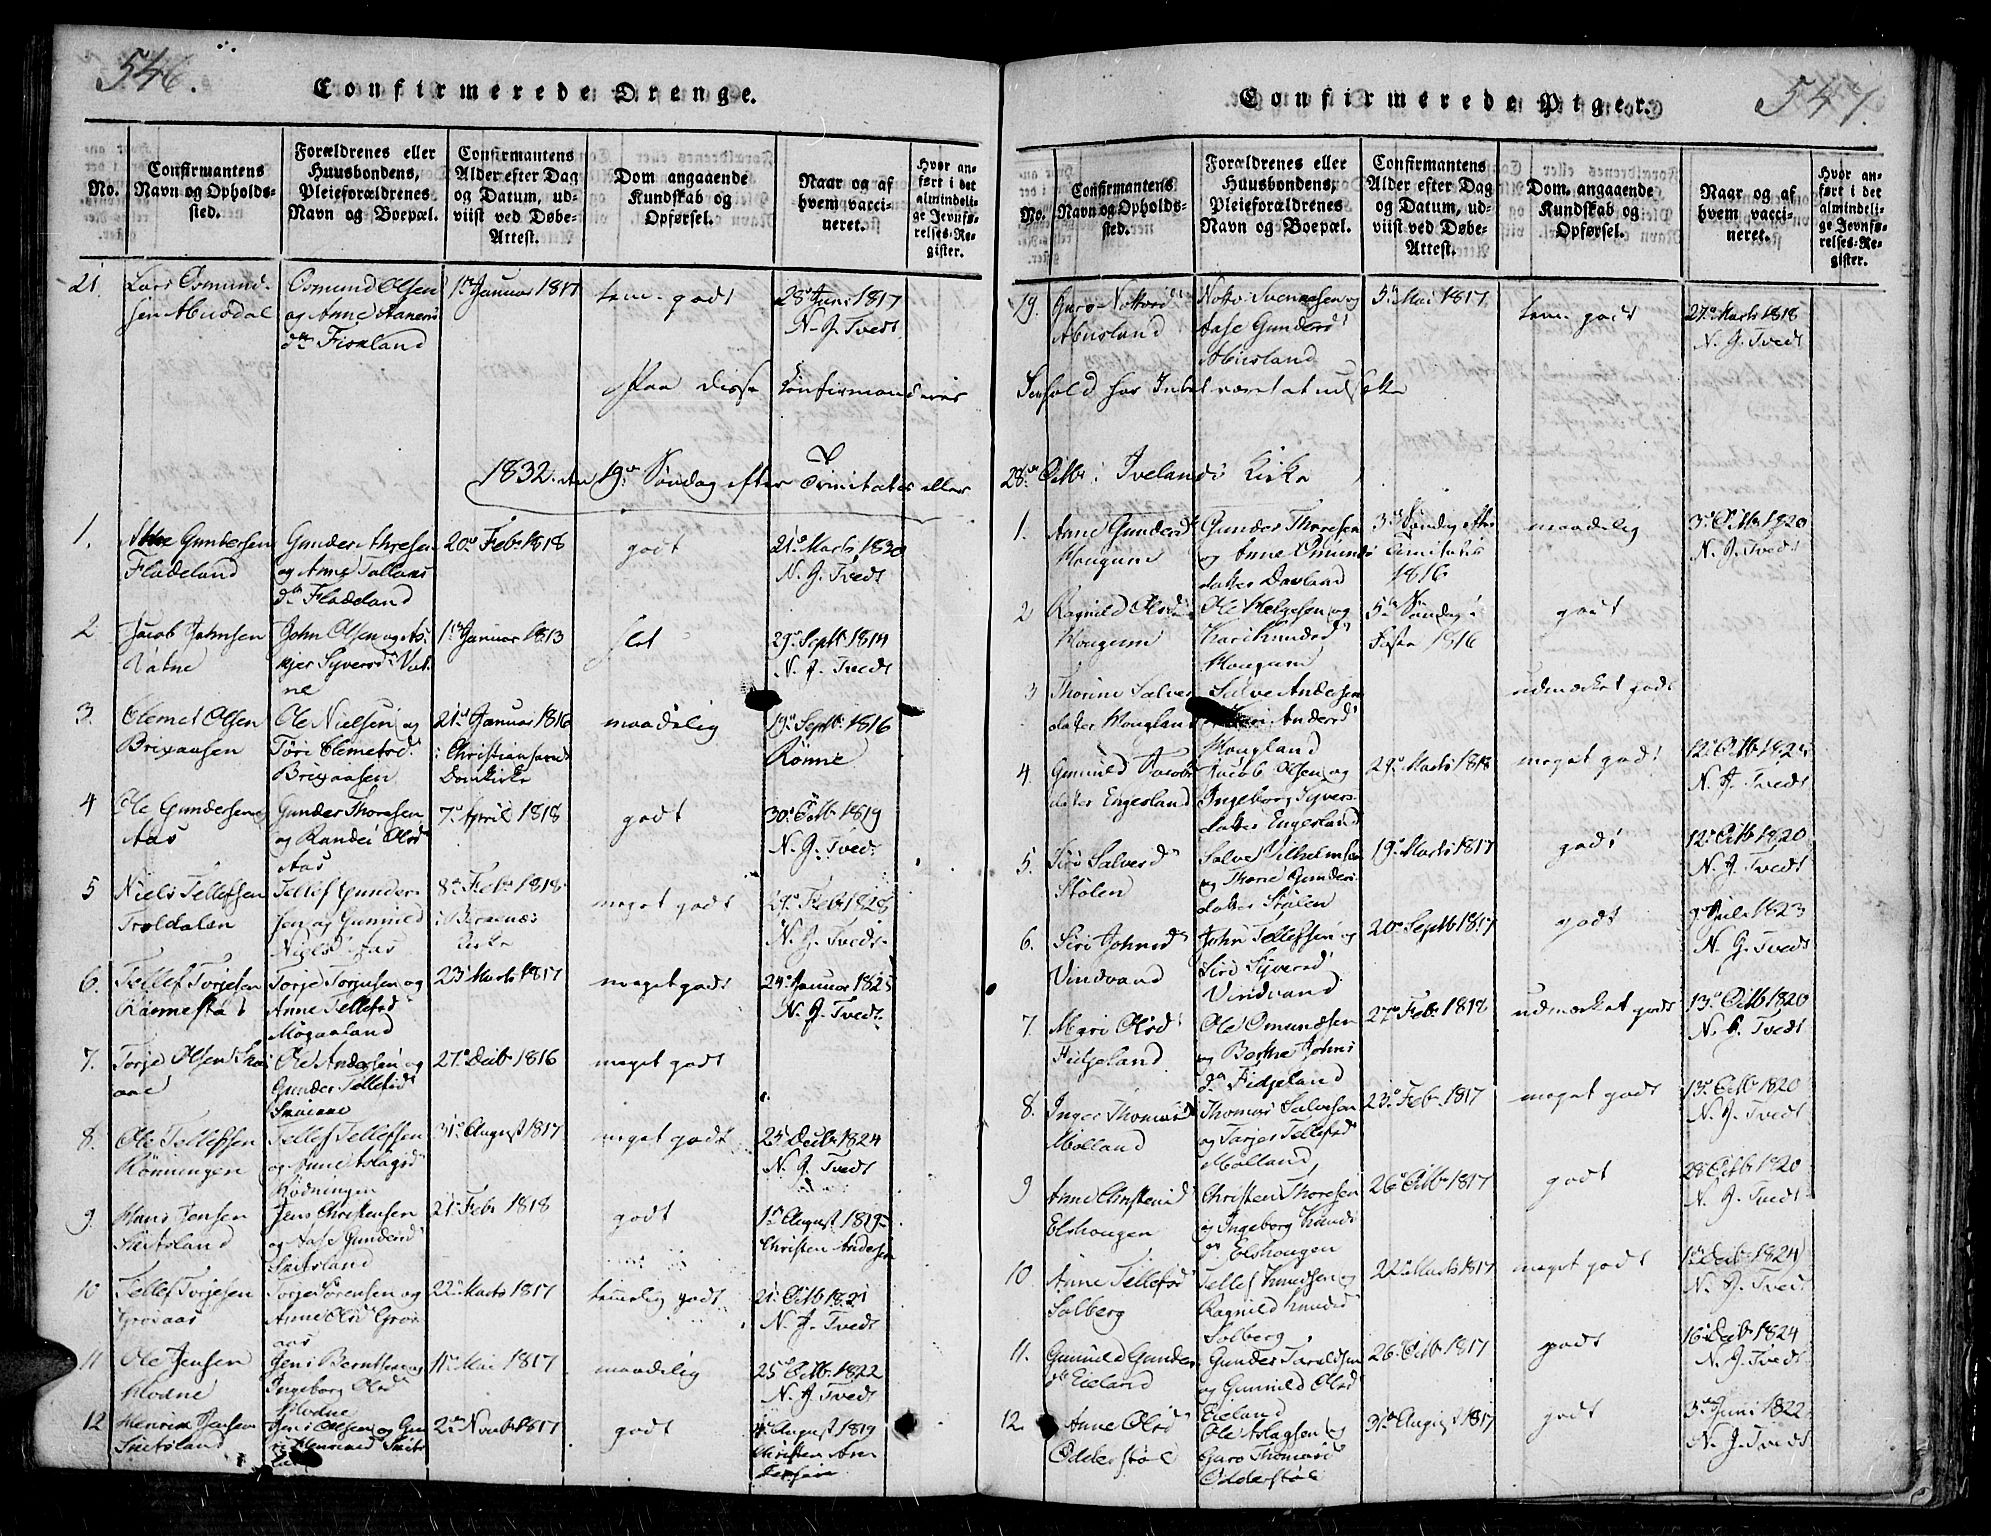 546.
Confirmerede Drenge.
No.
Confirmantens
Navn og Opholds-
sted.
Forældrenes eller
Huusbondens,
Pleieforældrenes
Navn og Boepæl.
Confirmantens
Alder efter Dag
og Datum, ud-
viist ved Døbe-
Attest.
Dom angaaende
Kundskab og
Opførsel.
Naar og af
hvem vacci-
neret.
Hvor an-
ført i det
almindeli-
ge Jevnfø-
relses-Re-
gister.
21.
Lars Osmund-
sen
Osmund Olsen
og Anne
Fiskland
1ste Januar 1817
tem. godt
28de Juni 1817
N. J. Tvedt
Paa disse Confirmanderes
1832. den 19de Søndag efter Trinitatis eller
1.
Gundersen
Fladeland
Gunder
og Anne
dtr Fladeland
20de Feb. 1818
godt
21de Marts 1830
N. J. Tvedt
2
Jacob Johnsen
Vatne
John Olsen og
Syversd. Vat-
ne
1ste Januar 1813
slet
29de Septb. 1814
N. J. Tvedt
3.
Clemet Olsen
Brixaasen
Ole Nielsen og
Tøri Clemetsd.
Brixaasen
21de Januar 1816
i Christiansands
Domkirke
maadelig
19de Septb. 1816
Rönne
4
Ole Gundersen
Aas
Gunder Thoresen
og Randei Olsd.
Aas
7de April 1818
godt
30de Octb. 1819
N. J. Tvedt
5
Niels Tellefsen
Troldalen
Tellef Gunder-
sen og Gunnild
Nielsd. Aas
8de Feb. 1818
i
Kirke
meget godt
27de Feb. 1828
N. J. Tvedt
6.
Tellef Torjesen
Torje Torjusen og
Anne Tellefsd.
23de Marts 1817
meget godt
24de Januar 1825
N. J. Tvedt
7.
Torje Olsen
Ole Andersen og
Gunder Tellefsd.
27de Decb. 1816
meget godt
8.
Ole Tellefsen
Rönningen
Tellef Tellefsen
og Anne Aslagsd.
Rödningen
31de August 1817
meget godt
23de Decb. 1824
N. J. Tvedt
9.
Hans Jensen
Snitsland
Jens Christensen
og Aase Gundersd.
Snitsland
21de Feb. 1818
godt
1ste August 1819
Christen Andersen
10
Tellef Torjesen
Grosaas
Torje Sörensen og
Anne Olsd. Gros-
aas
22de Marts 1817
temelig godt
21de Octb. 1821
N. J. Tvedt
11
Ole Jensen
Hodne
Jens Berntsen og
Ingeborg Olsd.
Hodne
11te Mai 1817
maadelig
25de Octb. 1822
N. J. Tvedt
12
Henrik Jensen
Snitsland
Jens Olsen og
2den Novb. 1817
godt
August 1819
Christen An-
dersen
547.
Confirmerede Piger.
No.
Confirmantens
Navn og Opholds-
sted.
Forældrenes eller
Huusbondens,
Pleieforældrenes
Navn og Boepæl.
Confirmantens
Alder efter Dag
og Datum, ud-
viist ved Døbe-
Attest.
Dom angaaende
Kundskab og
Opførsel.
Naar og af
hvem vacci-
neret.
Hvor an-
ført i det
almindeli-
ge Jevnfø-
relses-Re-
gister.
19.
Guro Nottosd.
Abusland
Notto Svennesen og
Aase Gundersd.
Abusland
5te Mai 1817
tem. godt
27de Marts 1818
N. J. Tvedt
Forhold har Intet været at udsætte
28de Octbr. i Ivelands Kirke
1.
Anne Gundersd.
Hougum
Gunder Thoresen
og Anne Omunds
datter
3die Søndag efter
Trinitatis
1816
maadelig
3die Octb. 1820
N. J. Tvedt
2
Ragnild Olsd.
Hougum
Ole Helgesen og
Kari Knudsd.
Hougum
5te Søndag i
Faste 1816
godt
3
Thorine Salves
datter Hougland
Salve Andersen
Andersd.
Hougland
udmærket godt
4.
Gunnild Jacobs
datter Engesland
Jacob Olsen og
Ingeborg Syvers-
datter Engesland
29de Marts 1818
meget godt
12te Octb.
N. J. Tvedt
5.
Siri Salvesd.
Stölen
Salve Vilhelmsen
og Thore Gunders
datter Stölen
19de Marts 1817
godt
12te Octb. 1820
N. J. Tvedt
6.
Siri Johnsd.
Vindvand
John Tellefsen og
Siri Syversd.
Vindvand
20de Septb. 1817
godt
9de Juli 1823
N. J. Tvedt
7.
Mari Olsd.
Fidgeland
Ole Omundsen
og Berthe Johns
dtr Fidjeland
27de Feb. 1818
udmærket godt
13de Octb. 1820
N. J. Tvedt
8.
Inger Thomasd.
Molland
Thomas Salvesen
og Torjer Tellefsd.
Molland
23de Feb. 1817
meget godt
13de Octb. 1820
N. J. Tvedt
9
Anne Christensd.
Elshougen
Christen Thoresen
og Ingeborg Knuds
dr Elshougen
26de Octb. 1817
godt
28de Octb. 1820
N. J. Tvedt
10.
Anne Tellefsd.
Solberg
Tellef Knudsen og
Ragnild Knudsd.
Solberg
22de Marts 1817
meget godt
Decb. 1824
N. J. Tvedt
11.
Gunnild Gunders
dtr Eieland
Gunder Taraldsen
og Gunnild Olsd.
Eieland
26de Octb. 1817
godt
16de Decb. 1824
N. J. Tvedt
12.
Anne Olsd.
Odderstöl
Ole Aslagsen og
Guro Thomasd.
Odderstöl
31te August 1817
godt
3die Juni 1822
N. J. Tvedt